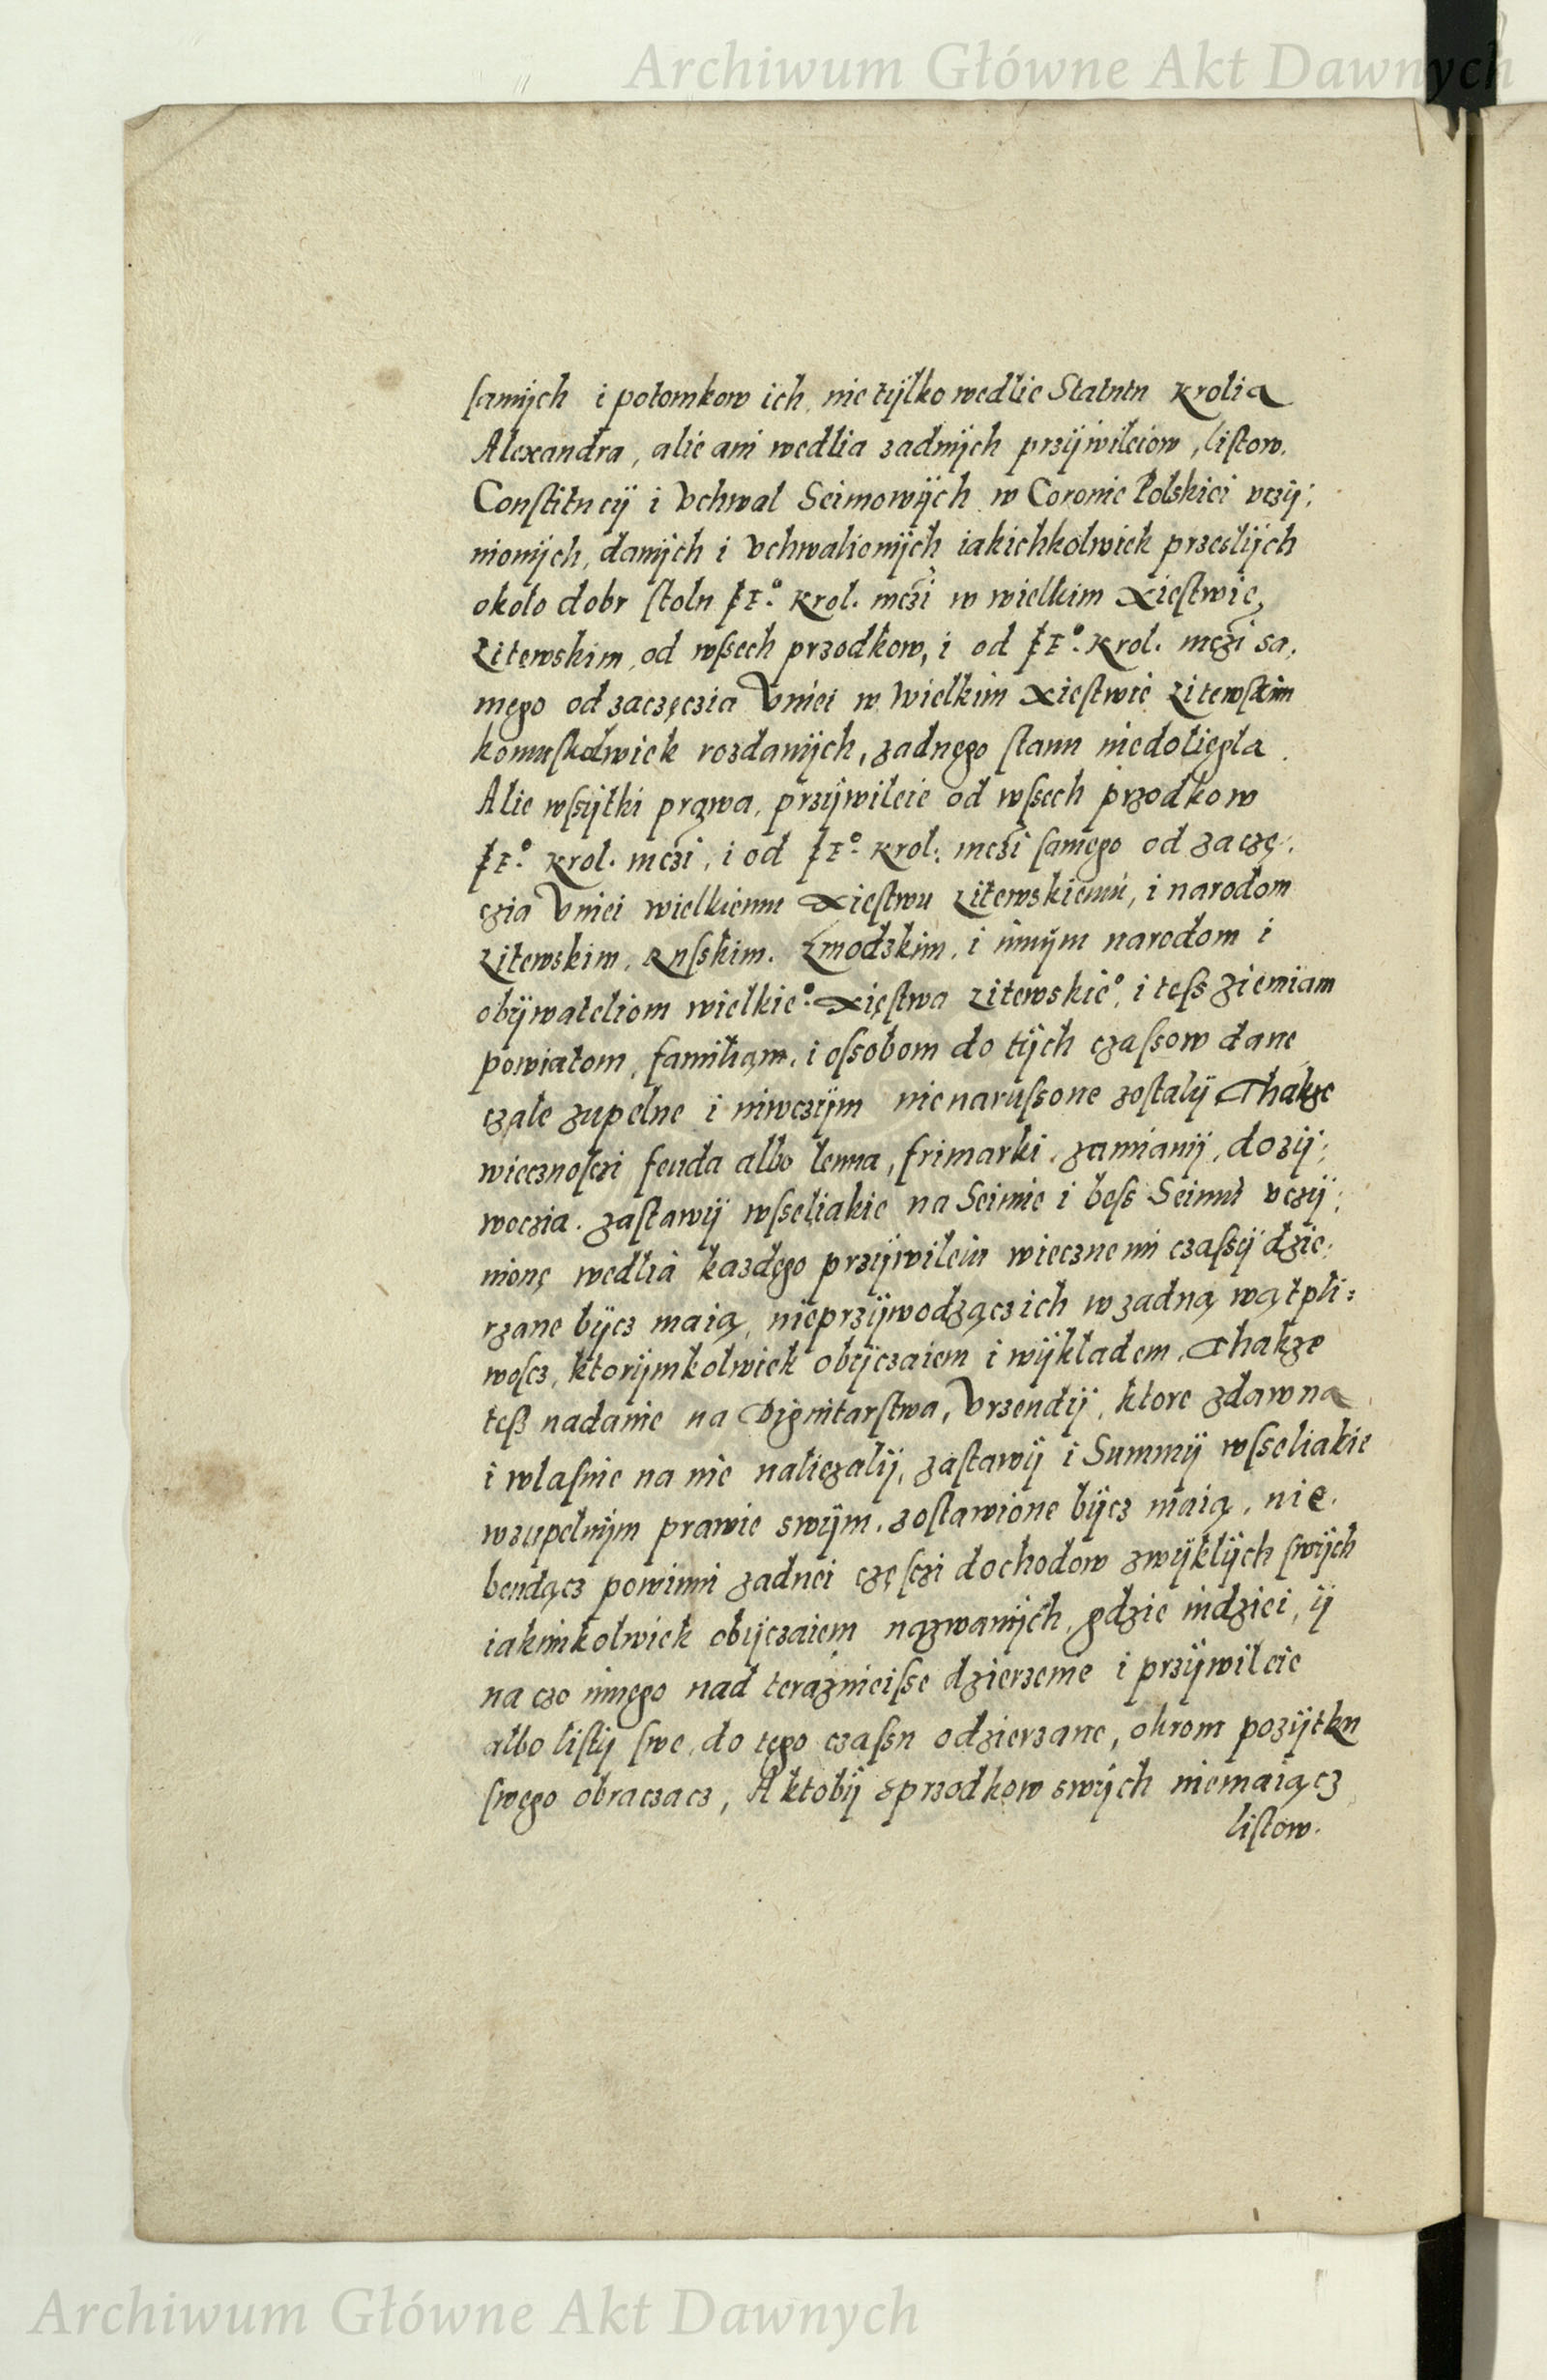 Archiwum Główne Akt Dawnych
samÿch i potomkow ich, nie tÿlko wedlie Statutu Krolia
Alexandra, alie ani wedlia zadnÿch przÿwileiow, listow.
Constitucÿ i Vchwal Seimowÿch w Coronie Polskiei vczÿ:
nionÿch, danÿch i Vchwalionÿch iakichkolwiek przeslÿch
około dobr stolu Je.º Krol. mczi w wielkim Xięstwie
Litewskim, od wssech przodkow, i od Je.º Krol. mczi sa,
mego od zaczęczia Vniei w Wielkim Xiestwie Litewskim
komuskolwiek rozdanÿch, zadnego stanu niedoliegla.
Alie wssÿtki prawa, przÿwileie od wssech przodkow
Je.º Krol. mczi, i od Je.º Krol. mczi samego od zaczę:
czia Vniei wielkiemu Xiestwu Litewskiemu, i narodom
Litewskim, Russkim, Zmodzkim, i innÿm narodom i
obÿwateliom wielkieº Xięstwa Litewskieº, i tess ziemiam
powiatom, familiam, i ossobom do tÿch czassow dane
czale zupelne i niwczÿm nienarussone zostalÿ Thakze
wiecznosczi feuda albo lenna, frimarki, zamianÿ, dozÿ:
woczia. zastawÿ wsseliakie na Seimie i bess Seimu vczÿ:
nione wedlia kazdego przÿwileiu wiecznemi czassÿ dzie:
rzane bÿcz maią, nieprzÿwodzącz ich w zadną wątpli:
woscz, ktorÿmkolwiek obÿczaiem i wÿkładem. Thakze
tess nadanie na Dignitarstwa, Vrzendÿ, ktore zdawna
i wlasnie na nie naliezalÿ, zastawÿ i Summÿ wsseliakie
wzupelnÿm prawie swÿm, zostawione bÿcz maią, nie.
bendącz powinni zadnei częsczi dochodow zwÿklÿch swÿch
iakimkolwiek obÿczaiem nazwanÿch, gdzie indziei, ÿ
na czo innego nad teraznieisse dzierzenie i przÿwileie
albo listÿ swe, do tego czassu odzierzane, okrom pozÿtku
swego obraczacz, A ktobÿ sprzodkow swÿch niemaiącz
listow.
Archiwum Główne Akt Dawnych